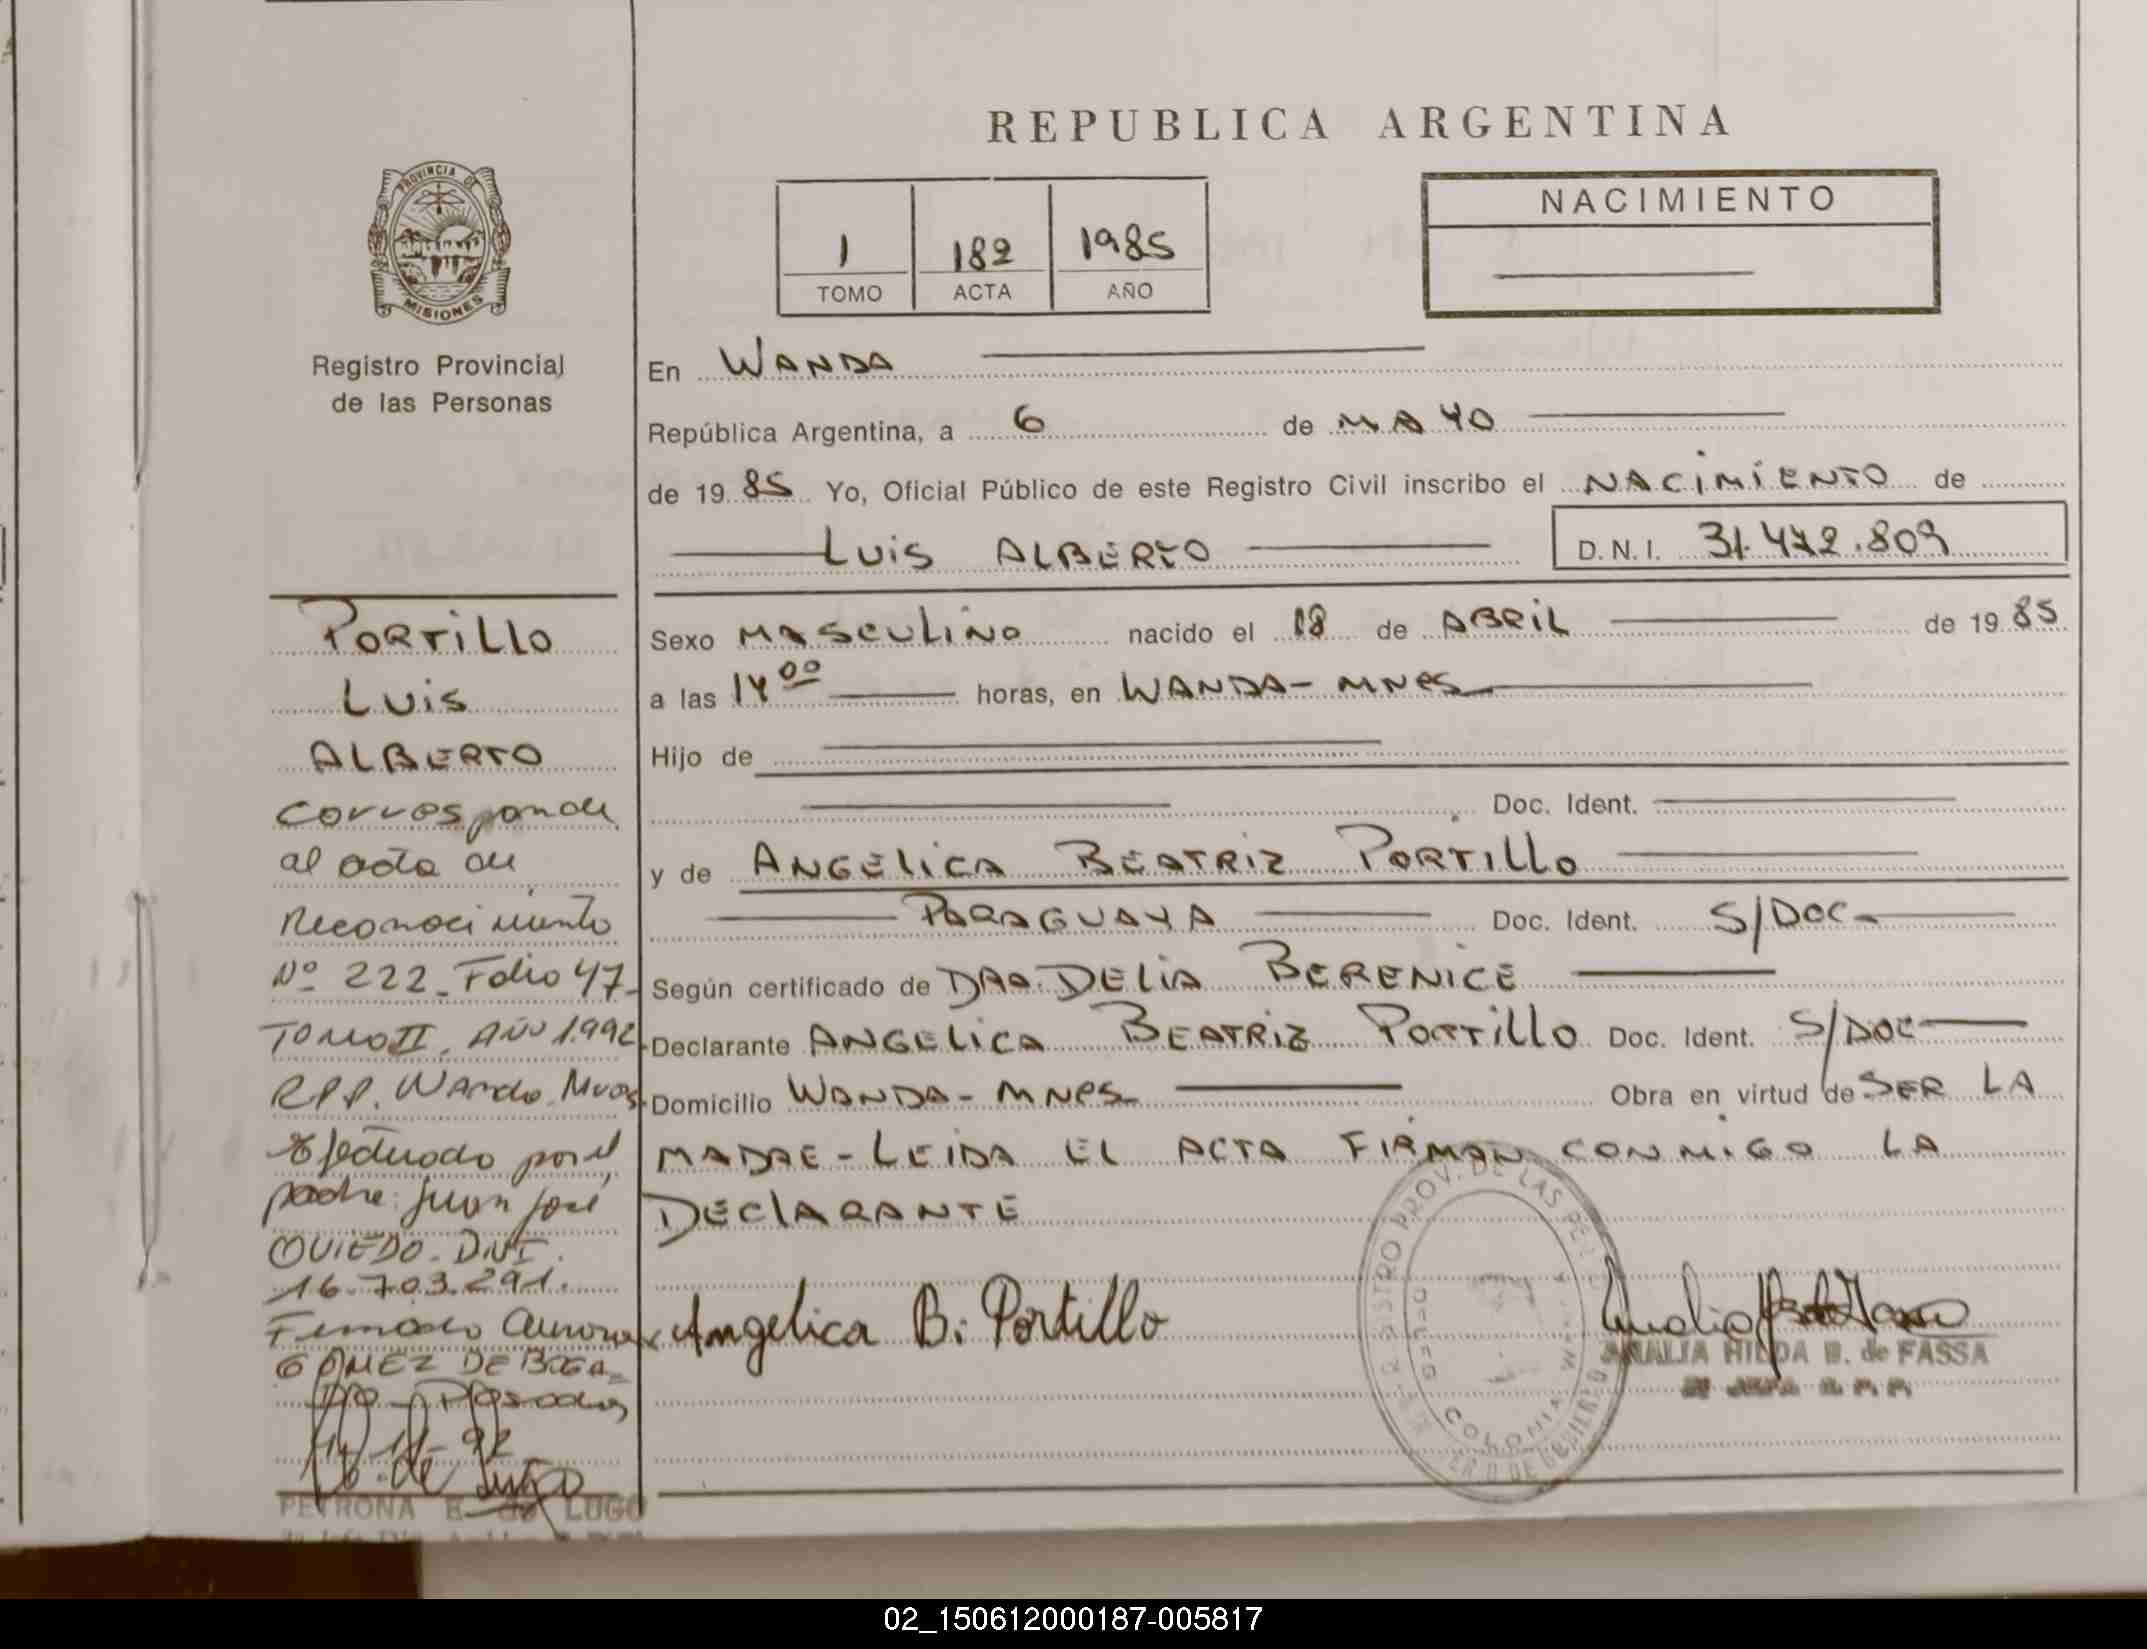 PROVINCIA DE
MISIONES
Registro Provincial
de las Personas
PORTILLO
LUIS
ALBERTO
Corresponde
al acta de
Reconocimiento
Nº 222 - Folio 47 -
TOMO II. AÑO 1992
R.P.P. Wanda Mnes
Efectuado por el
padre: Juan José
OVIEDO - DNI.
16.703.291.
Firmado Aurora
GOMEZ DE
Posadas
PETRONA E. de LUGO
REPUBLICA ARGENTINA
1 182 1985
TOMO ACTA AÑO
NACIMIENTO
En WANDA
República Argentina, a 6 de MAYO
de 1985 Yo, Oficial Público de este Registro Civil inscribo el NACIMIENTO de
LUIS ALBERTO D.N.I. 31.472.809
Sexo MASCULINO nacido el 18 de ABRIL de 1985
a las 14 00 horas, en WANDA - MNES
Hijo de
Doc. Ident.
y de ANGELICA BEATRIZ PORTILLO
PARAGUAYA Doc. Ident. S/DOC-
Según certificado de DRA. DELIA BERENICE
Declarante ANGELICA BEATRIZ PORTILLO Doc. Ident. S/DOC
Domicilio WANDA - MNES Obra en virtud de SER LA
MADRE - LEIDA EL ACTA FIRMAN CONMIGO LA
DECLARANTE
Angelica B. Portillo
ANALIA HILDA B. de FASSA
COLONIA WANDA
02_150612000187-005817